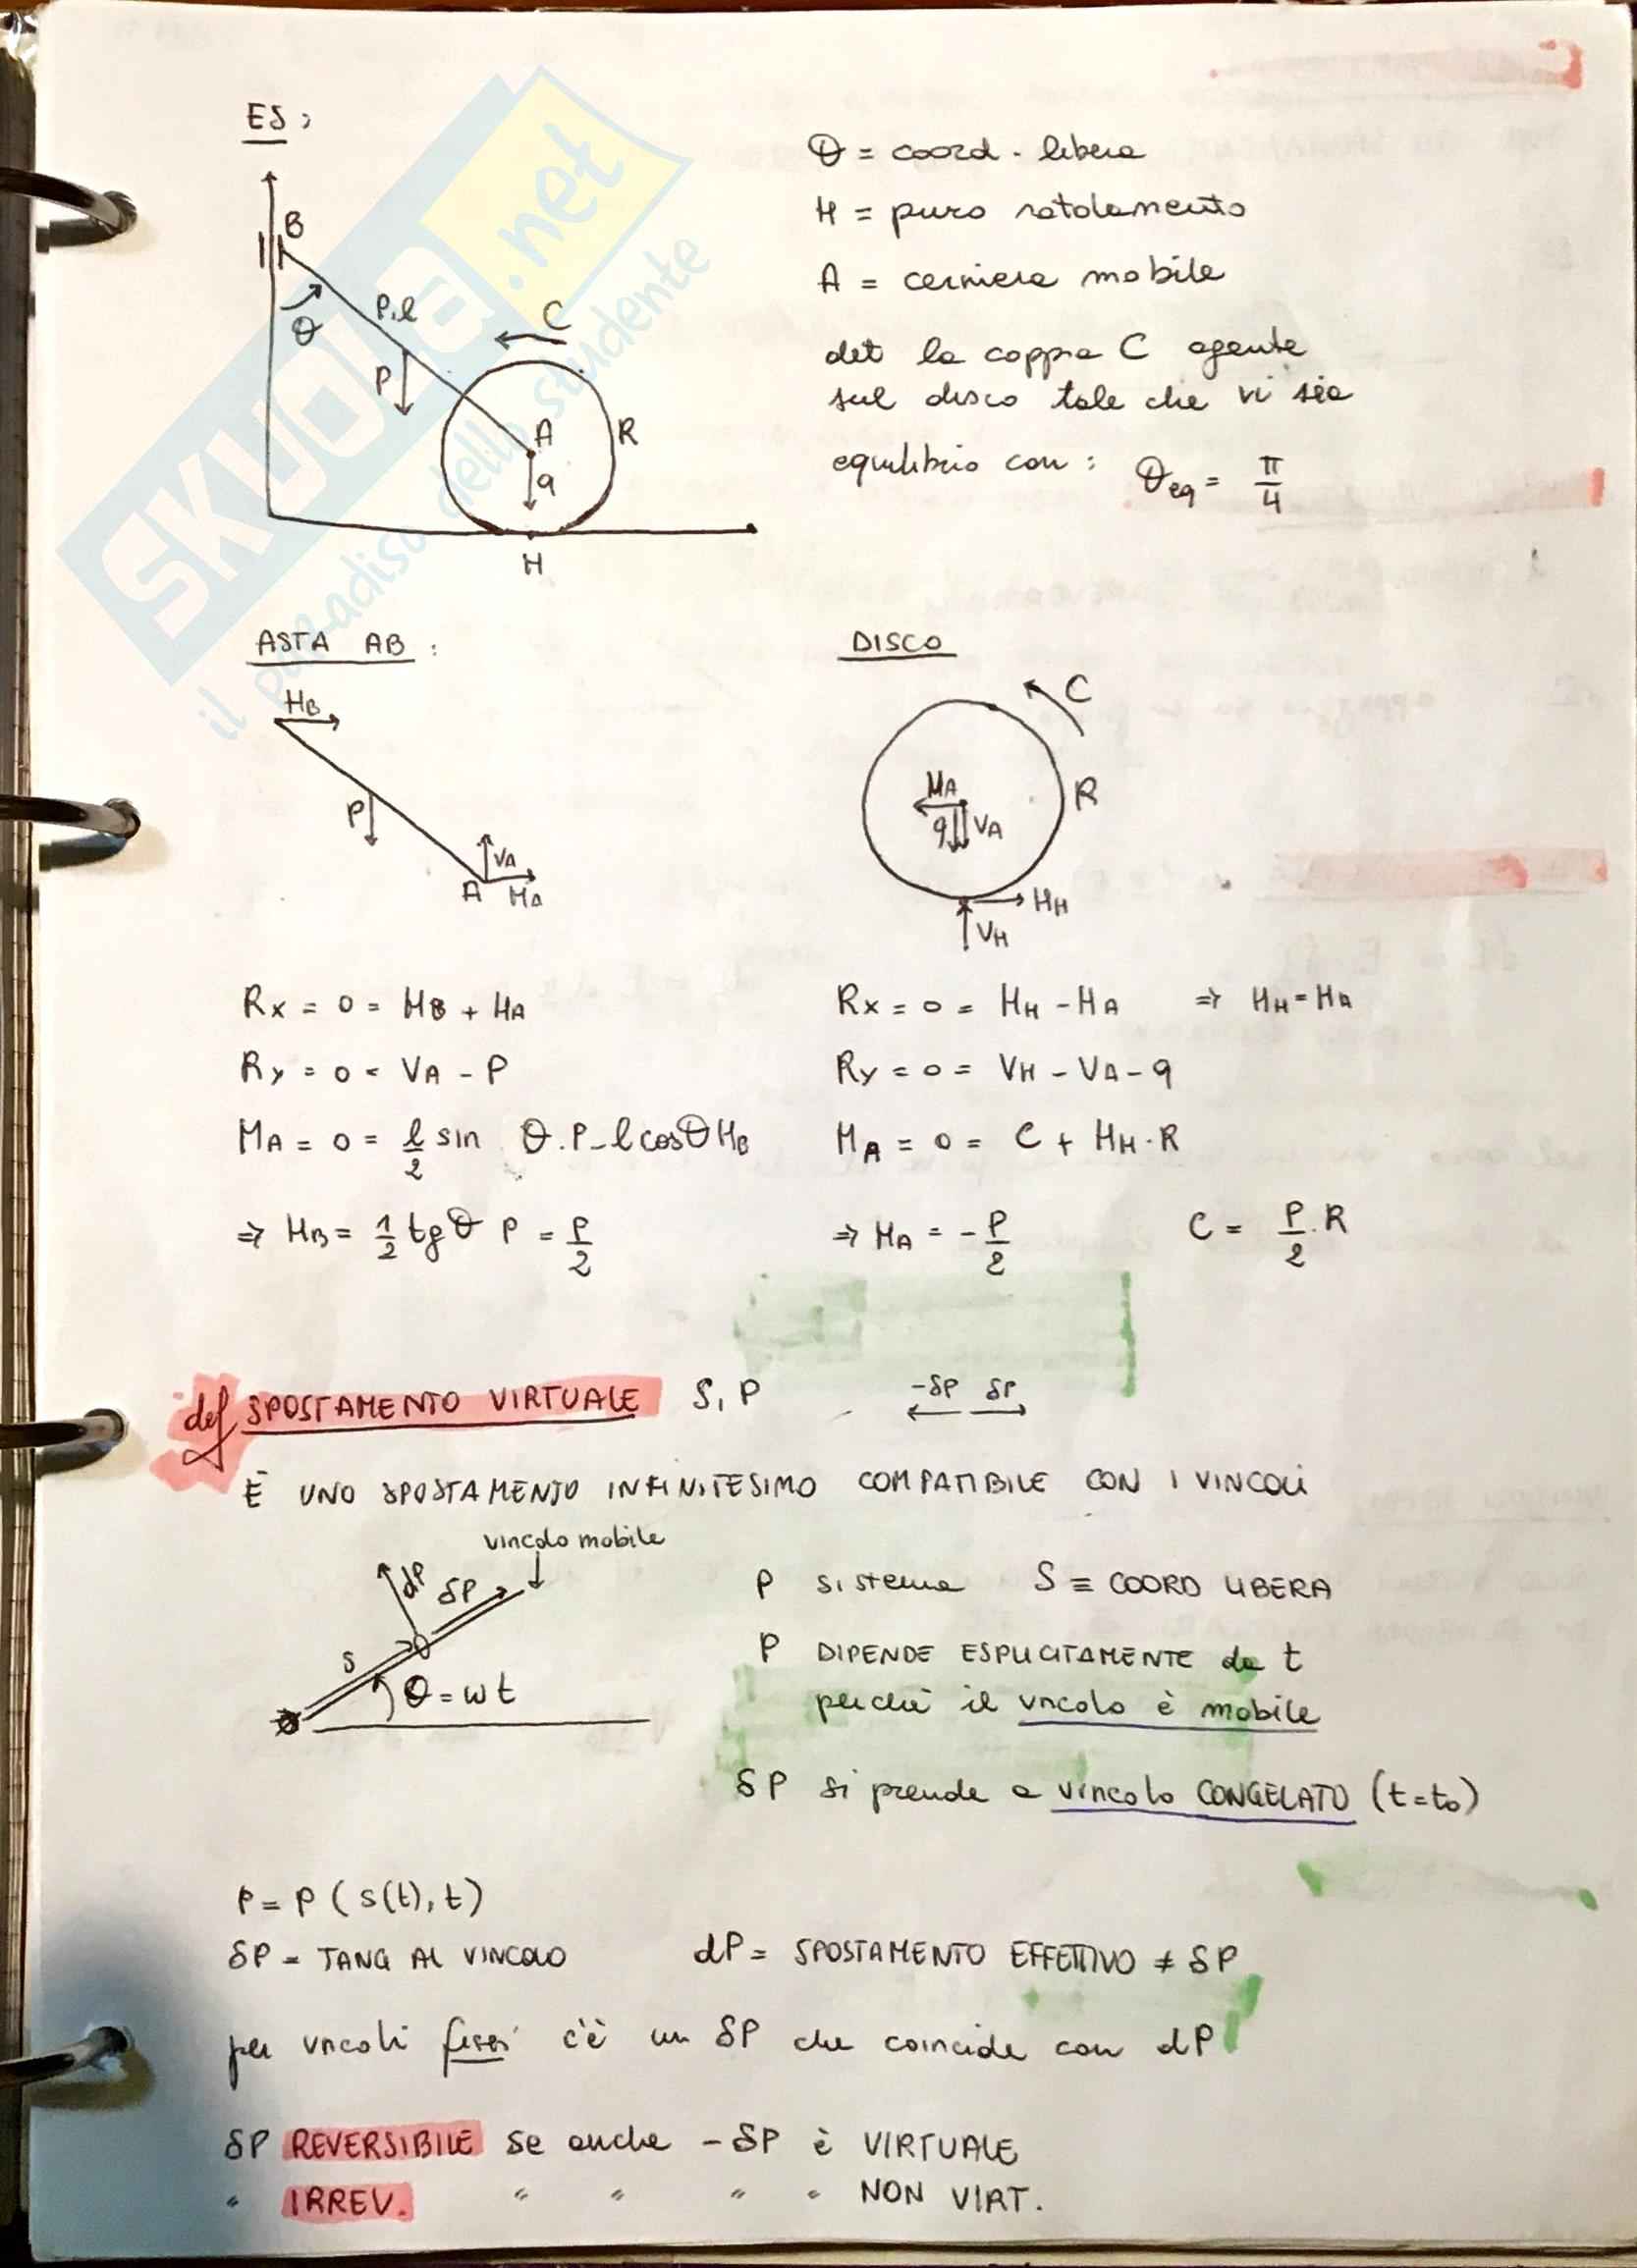 ES:
B
θ
P,l
P
C
A
R
q
H
θ = coord. libera
H = puro rotolamento
A = cerniera mobile
det la coppia C agente
sul disco tale che vi sia
equilibrio con: θeq = π/4
SKUOLA.net
il paradiso dello studente
ASTA AB:
HB
P
VA
A HA
DISCO
C
HA
R
q VA
HH
VH
Rx = 0 = HB + HA
Ry = 0 = VA - P
MA = 0 = l/2 sin θ.P - l cosθ HB
⇒ HB = 1/2 tgθ P = P/2
Rx = 0 = HH - HA ⇒ HH = HA
Ry = 0 = VH - VA - q
MA = 0 = C + HH·R
⇒ HA = - P/2 C = P/2·R
def SPOSTAMENTO VIRTUALE S, P -δP δP
È UNO SPOSTAMENTO INFINITESIMO COMPATIBILE CON I VINCOLI
vincolo mobile
dP δP
s
θ = ωt
P sistema S ≡ COORD LIBERA
P DIPENDE ESPLICITAMENTE da t
perché il vncolo è mobile
δP si prende a vincolo CONGELATO (t=t₀)
P = P (s(t), t)
δP = TANG AL VINCOLO dP = SPOSTAMENTO EFFETTIVO ≠ δP
per vncoli fissi c'è un δP che coincide con dP
δP REVERSIBILE se anche -δP è VIRTUALE
" IRREV. " " " " NON VIRT.